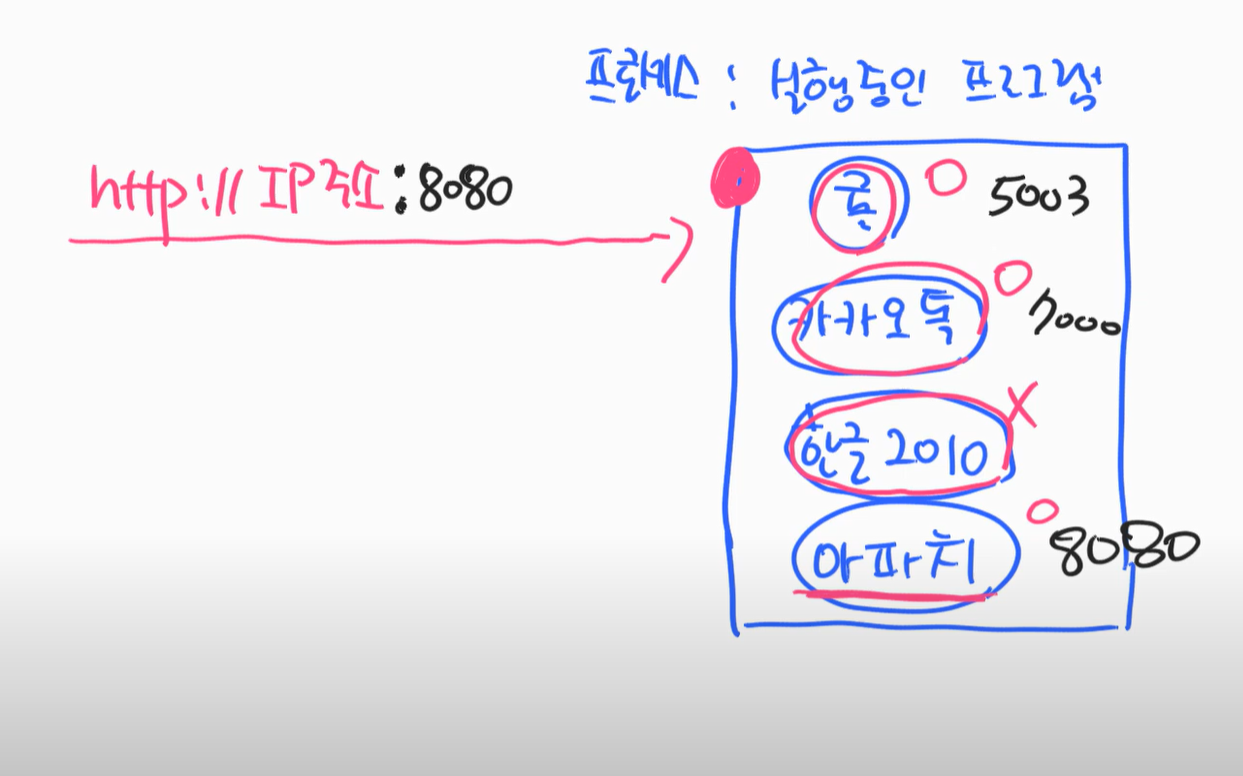 프로세스 : 실행중인 프로그램
http:// IP주소:8080
줌 5003
카카오톡 7000
X
한글 2010
아파치 8080